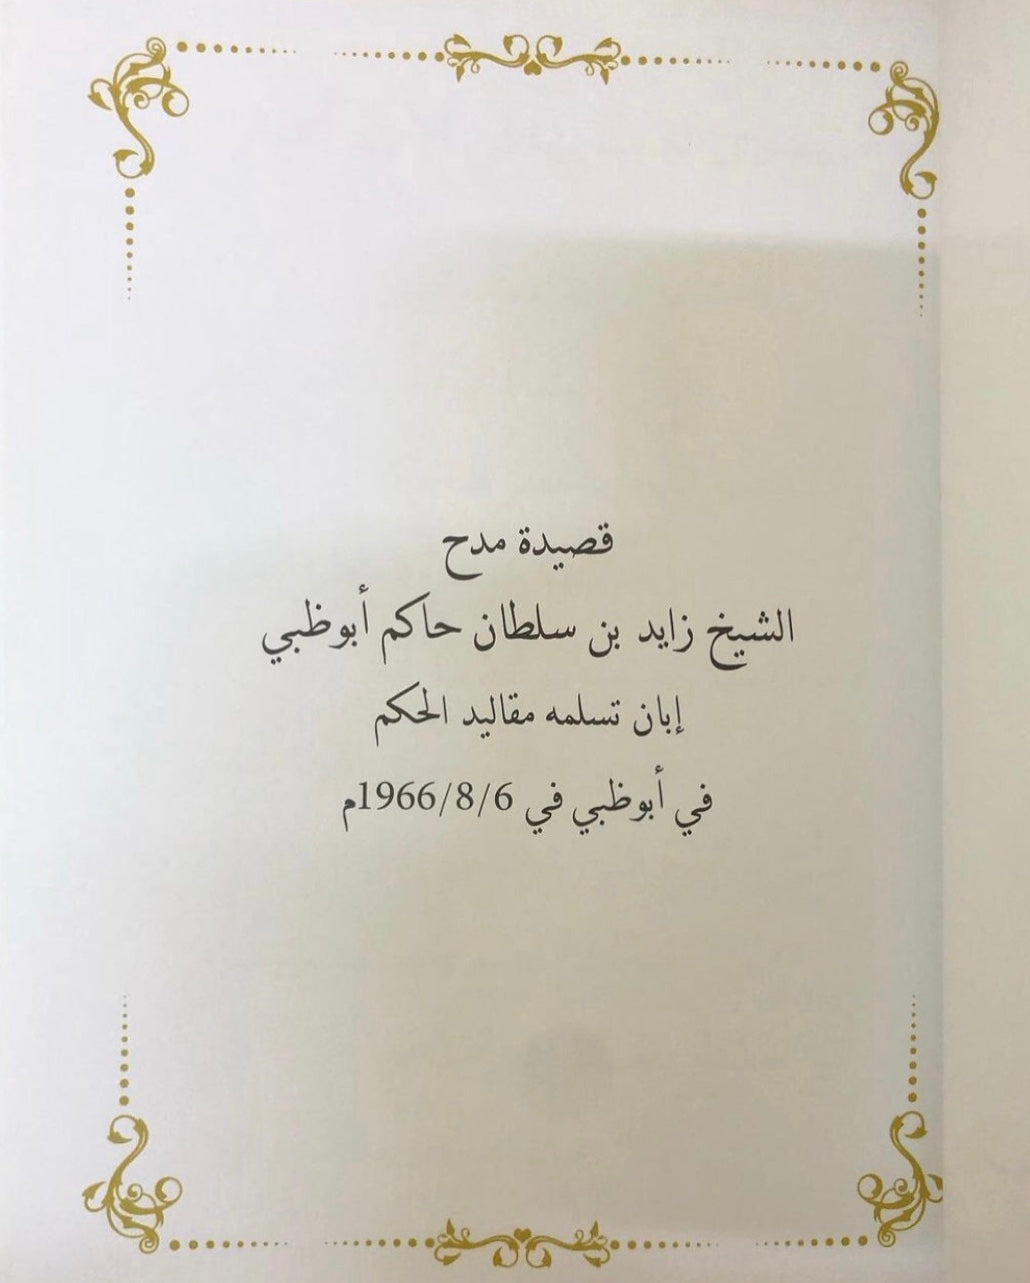 قصيدة مدح
الشيخ زايد بن سلطان حاكم أبوظبي
إبان تسلمه مقاليد الحكم
في أبوظبي في 1966/8/6م